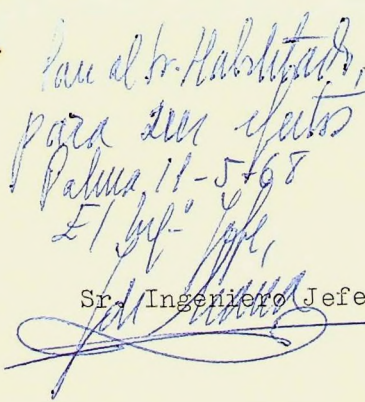 Pase al Sr. Habilitado,
para sus efectos
Palma 11-5-68
El Ingº Jefe,
Sr. Ingeniero Jefe